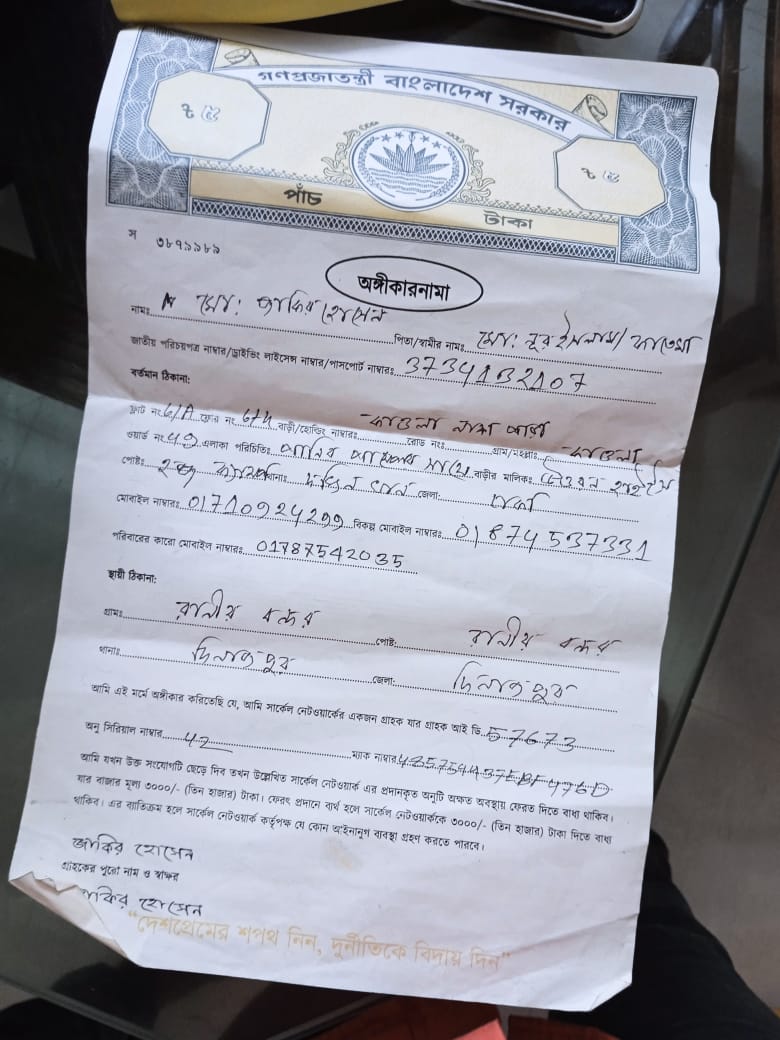 গণপ্রজাতন্ত্রী বাংলাদেশ সরকার
৳ ৫ ৳ ৫
পাঁচ টাকা
স ৩৮৭৯৯৮৯
অঙ্গীকারনামা
নামঃ মো: জাকির হোসেন পিতা/স্বামীর নামঃ মো: নূর ইসলাম/ ফাতেমা
জাতীয় পরিচয়পত্র নাম্বার/ড্রাইভিং লাইসেন্স নাম্বার/পাসপোর্ট নাম্বারঃ 3734132107
বর্তমান ঠিকানা:
ফ্লাট নং 6/A ফ্লোর নং বাড়ী/হোল্ডিং নাম্বারঃ রোড নংঃ গ্রাম/মহল্লাঃ কাওলা
ওয়ার্ড নং 49 এলাকা পরিচিতিঃ পানির পাম্পের সাথে বাড়ীর মালিকঃ
পোষ্টঃ থানাঃ দক্ষিন খান জেলা: ঢাকা
মোবাইল নাম্বারঃ 01710924299 বিকল্প মোবাইল নাম্বারঃ 01874537331
পরিবারের কারো মোবাইল নাম্বারঃ 01787542035
স্থায়ী ঠিকানা:
গ্রামঃ রানীর বন্দর পোষ্টঃ রানীর বন্দর
থানাঃ দিনাজপুর জেলা: দিনাজপুর
আমি এই মর্মে অঙ্গীকার করিতেছি যে, আমি সার্কেল নেটওয়ার্কের একজন গ্রাহক যার গ্রাহক আই ডি 57673
অনু সিরিয়াল নাম্বার 42 ম্যাক নাম্বার
আমি যখন উক্ত সংযোগটি ছেড়ে দিব তখন উল্লেখিত সার্কেল নেটওয়ার্ক এর প্রদানকৃত অনুটি অক্ষত অবস্থায় ফেরত দিতে বাধ্য থাকিব।
যার বাজার মূল্য ৩০০০/- (তিন হাজার) টাকা। ফেরৎ প্রদানে ব্যর্থ হলে সার্কেল নেটওয়ার্ককে ৩০০০/- (তিন হাজার) টাকা দিতে বাধ্য
থাকিব। এর ব্যতিক্রম হলে সার্কেল নেটওয়ার্ক কর্তৃপক্ষ যে কোন আইনানুগ ব্যবস্থা গ্রহণ করতে পারবে।
জাকির হোসেন
গ্রাহকের পুরো নাম ও স্বাক্ষর
জাকির হোসেন
"দেশপ্রেমের শপথ নিন, দুর্নীতিকে বিদায় দিন"